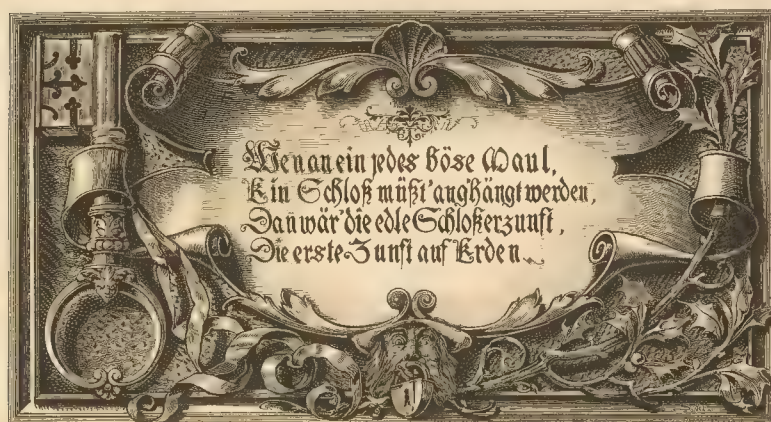 Wen̄ an ein jedes böse Maul,
Ein Schloß müßt' ang'hängt werden,
Dan̄ wär' die edle Schloßerzunft,
Die erste Zunft auf Erden.